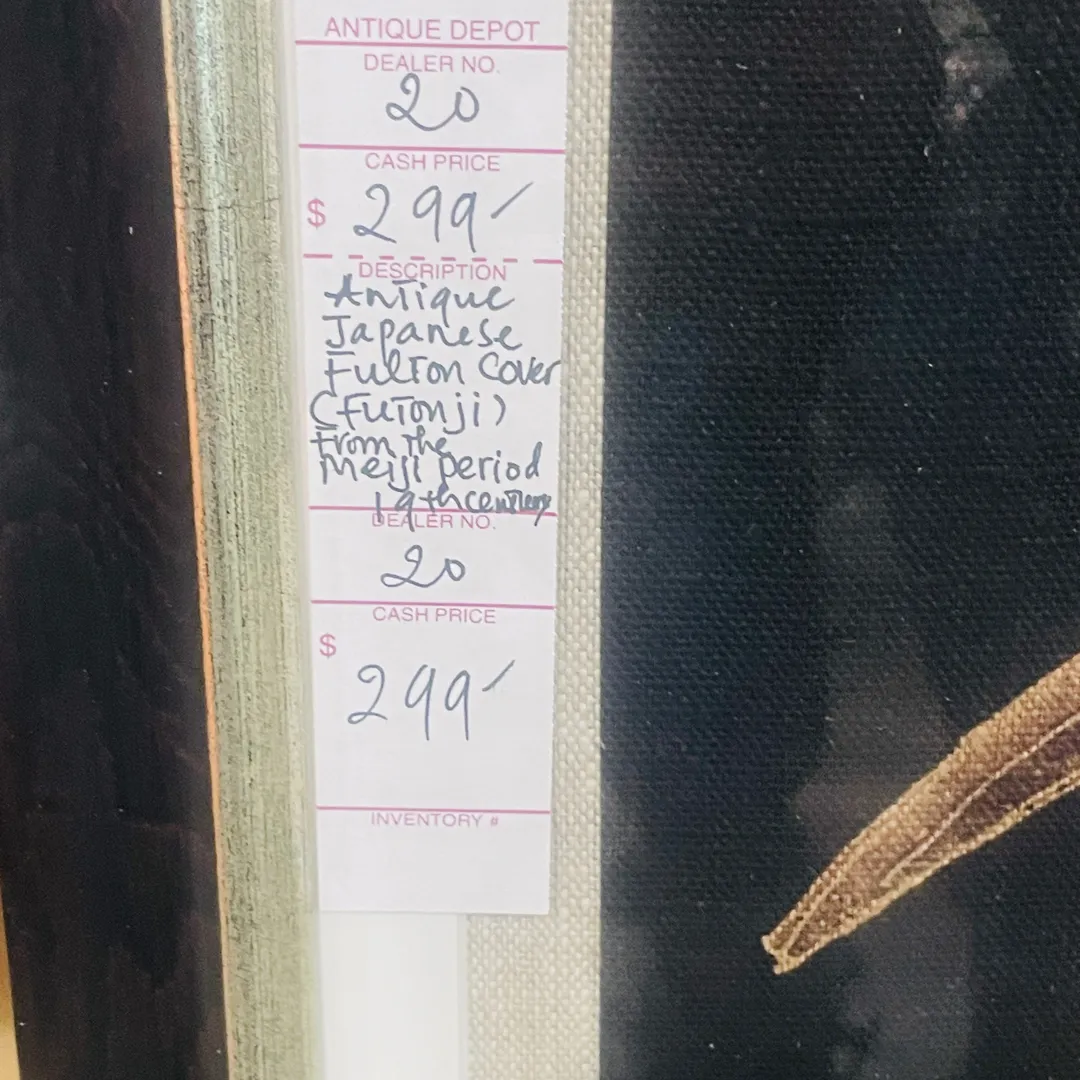 ANTIQUE DEPOT
DEALER NO.
20
CASH PRICE
$ 299
DESCRIPTION
Antique
Japanese
Fulton Cover
(Futonji)
from the
Meiji period
19th century
DEALER NO.
20
CASH PRICE
$
299
INVENTORY #